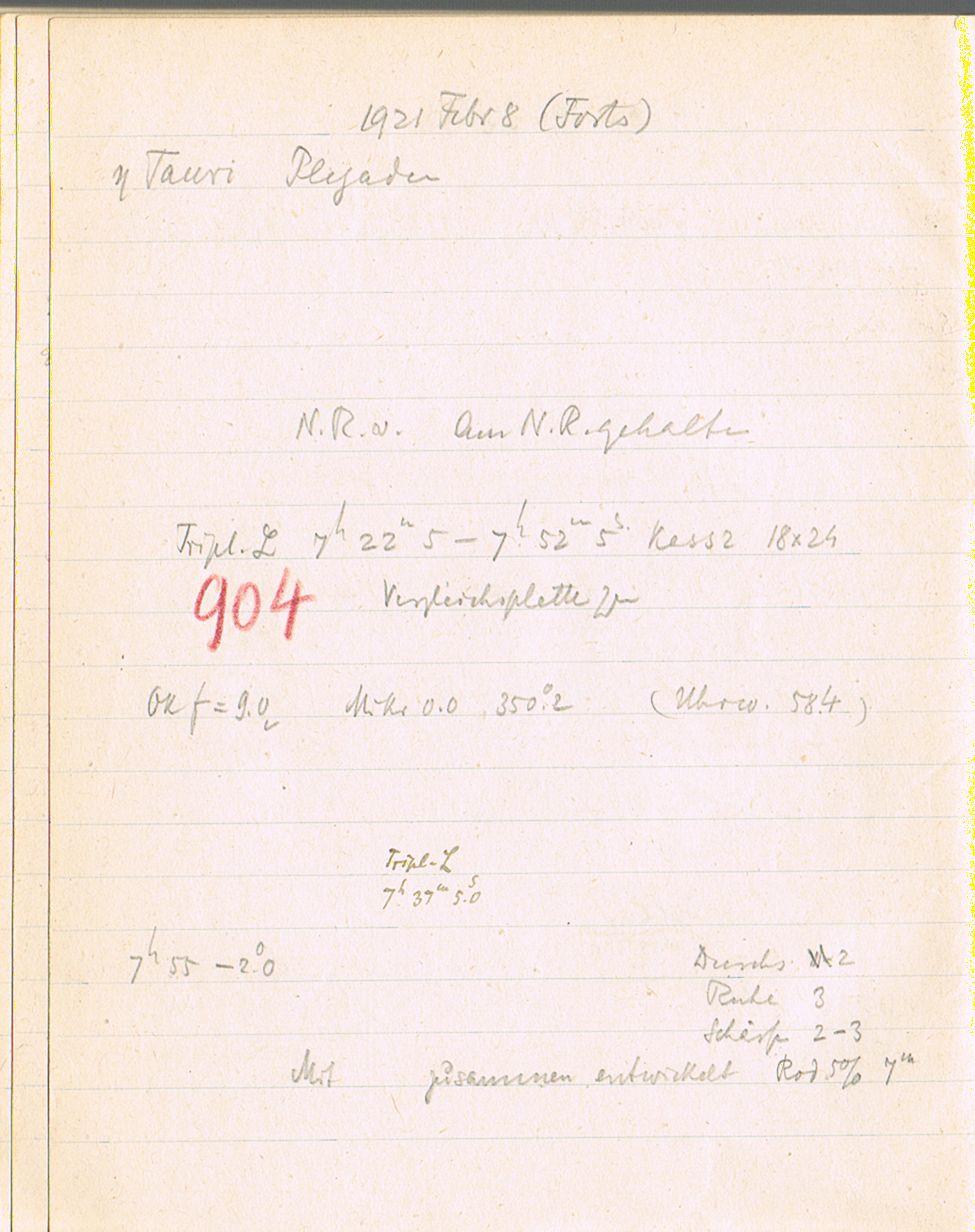 1921 Febr 8 (Forts)
η Tauri Plejaden
N.R.v. Am N.R. gehalten
Tripl. L 7h 22m 5 – 7h 52m 5s. Kass2 18x24
904 Vergleichsplatte zu
Ok f = 9.0 Mikr 0.0 350°.2 (Uhrw. 584)
Tripl-L
7h 37m 5.s0
7h 55 –2.°0 Durchs 2
Ruhe 3
Schärfe 2–3
Mit zusammen entwickelt Rod 5% 7m